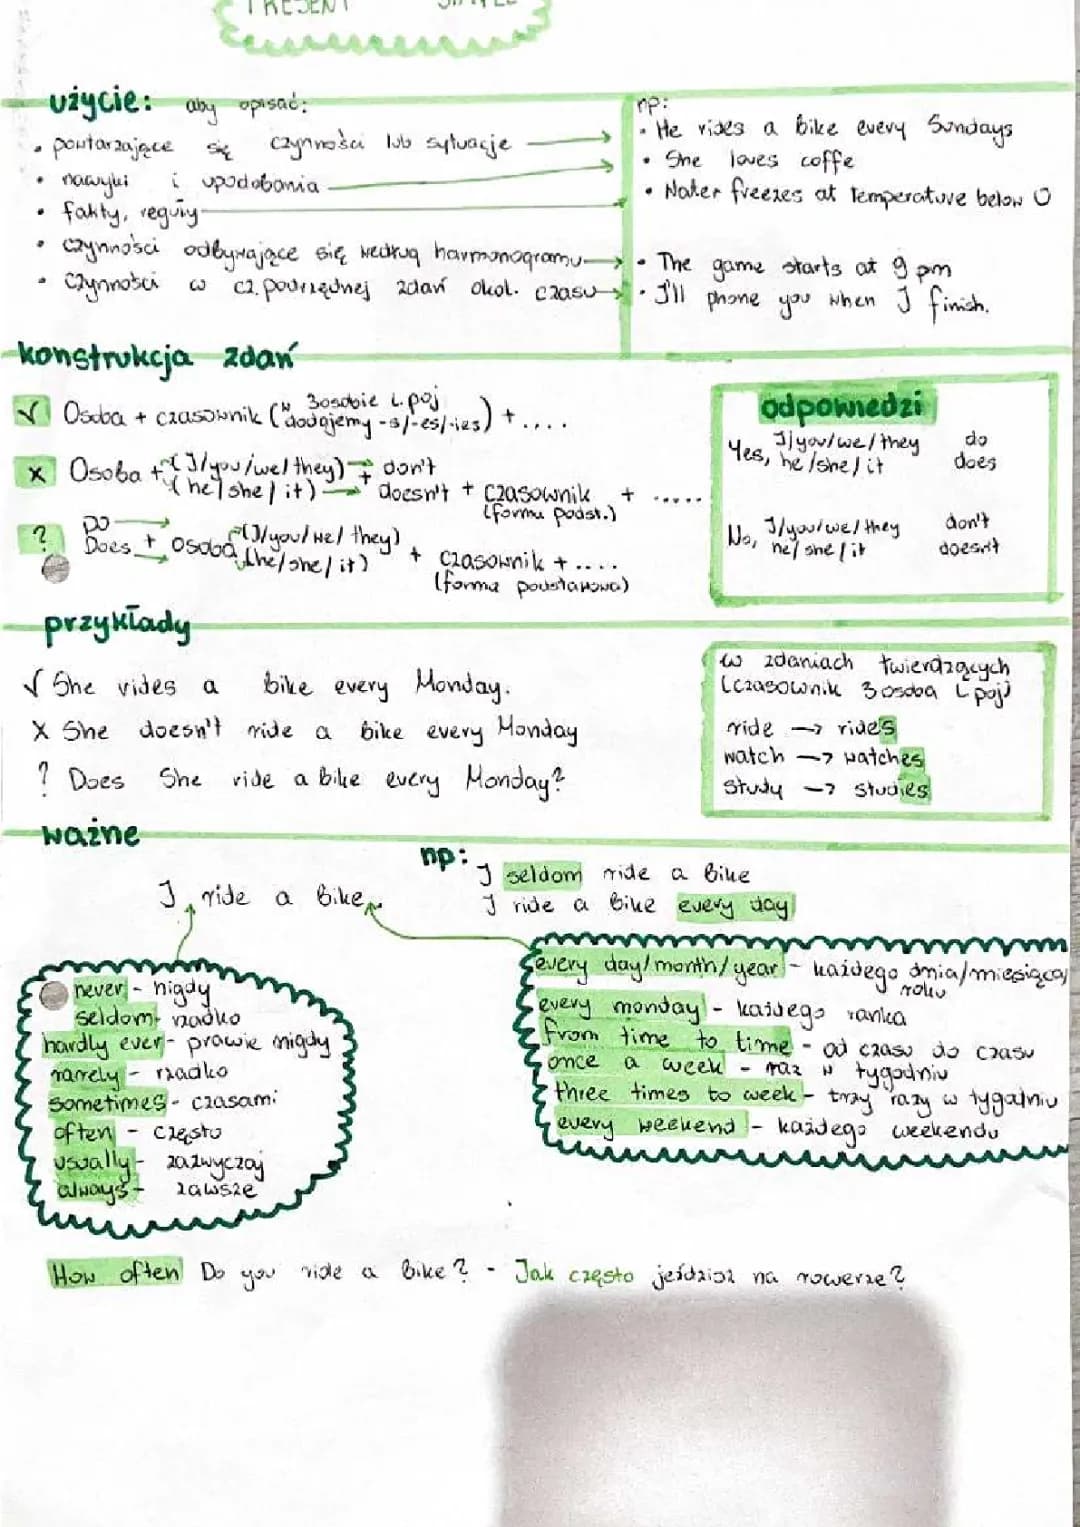 PRESENT SIMPLE
użycie: aby opisać:
• powtarzające się czynności lub sytuacje
• nawyki i upodobania
• fakty, reguły
• czynności odbywające się według harmonogramu
• czynności w cz. podrzędnej zdań okol. czasu
np:
• He rides a bike every Sundays
• She loves coffe
• Water freezes at temperature below 0
• The game starts at 9 pm
• I'll phone you when I finish.
konstrukcja zdań
√ Osoba + czasownik (w 3osobie l.poj dodajemy -s/-es/-ies) + ....
x Osoba + (I/you/we/they) → don't
(he/she/it) → doesn't + czasownik + .....
(forma podst.)
? Do → Does → + osoba (I/you/we/they)
(he/she/it) + czasownik + ....
(forma podstawowa)
odpowiedzi
Yes, I/you/we/they do
he/she/it does
No, I/you/we/they don't
he/she/it doesn't
przykłady
√ She rides a bike every Monday.
X She doesn't ride a bike every Monday
? Does She ride a bike every Monday?
w zdaniach twierdzących
(czasownik 3 osoba l poj)
ride → rides
watch → watches
study → studies
ważne
I ride a bike
np:
I seldom ride a bike
I ride a bike every day
never - nigdy
seldom - rzadko
hardly ever - prawie nigdy
rarely - rzadko
sometimes - czasami
often - często
usually - zazwyczaj
always - zawsze
every day/month/year - każdego dnia/miesiąca/
roku
every monday - każdego ranka
from time to time - od czasu do czasu
once a week - raz w tygodniu
three times to week - trzy razy w tygodniu
every weekend - każdego weekendu
How often Do you ride a bike? - Jak często jeździsz na rowerze?